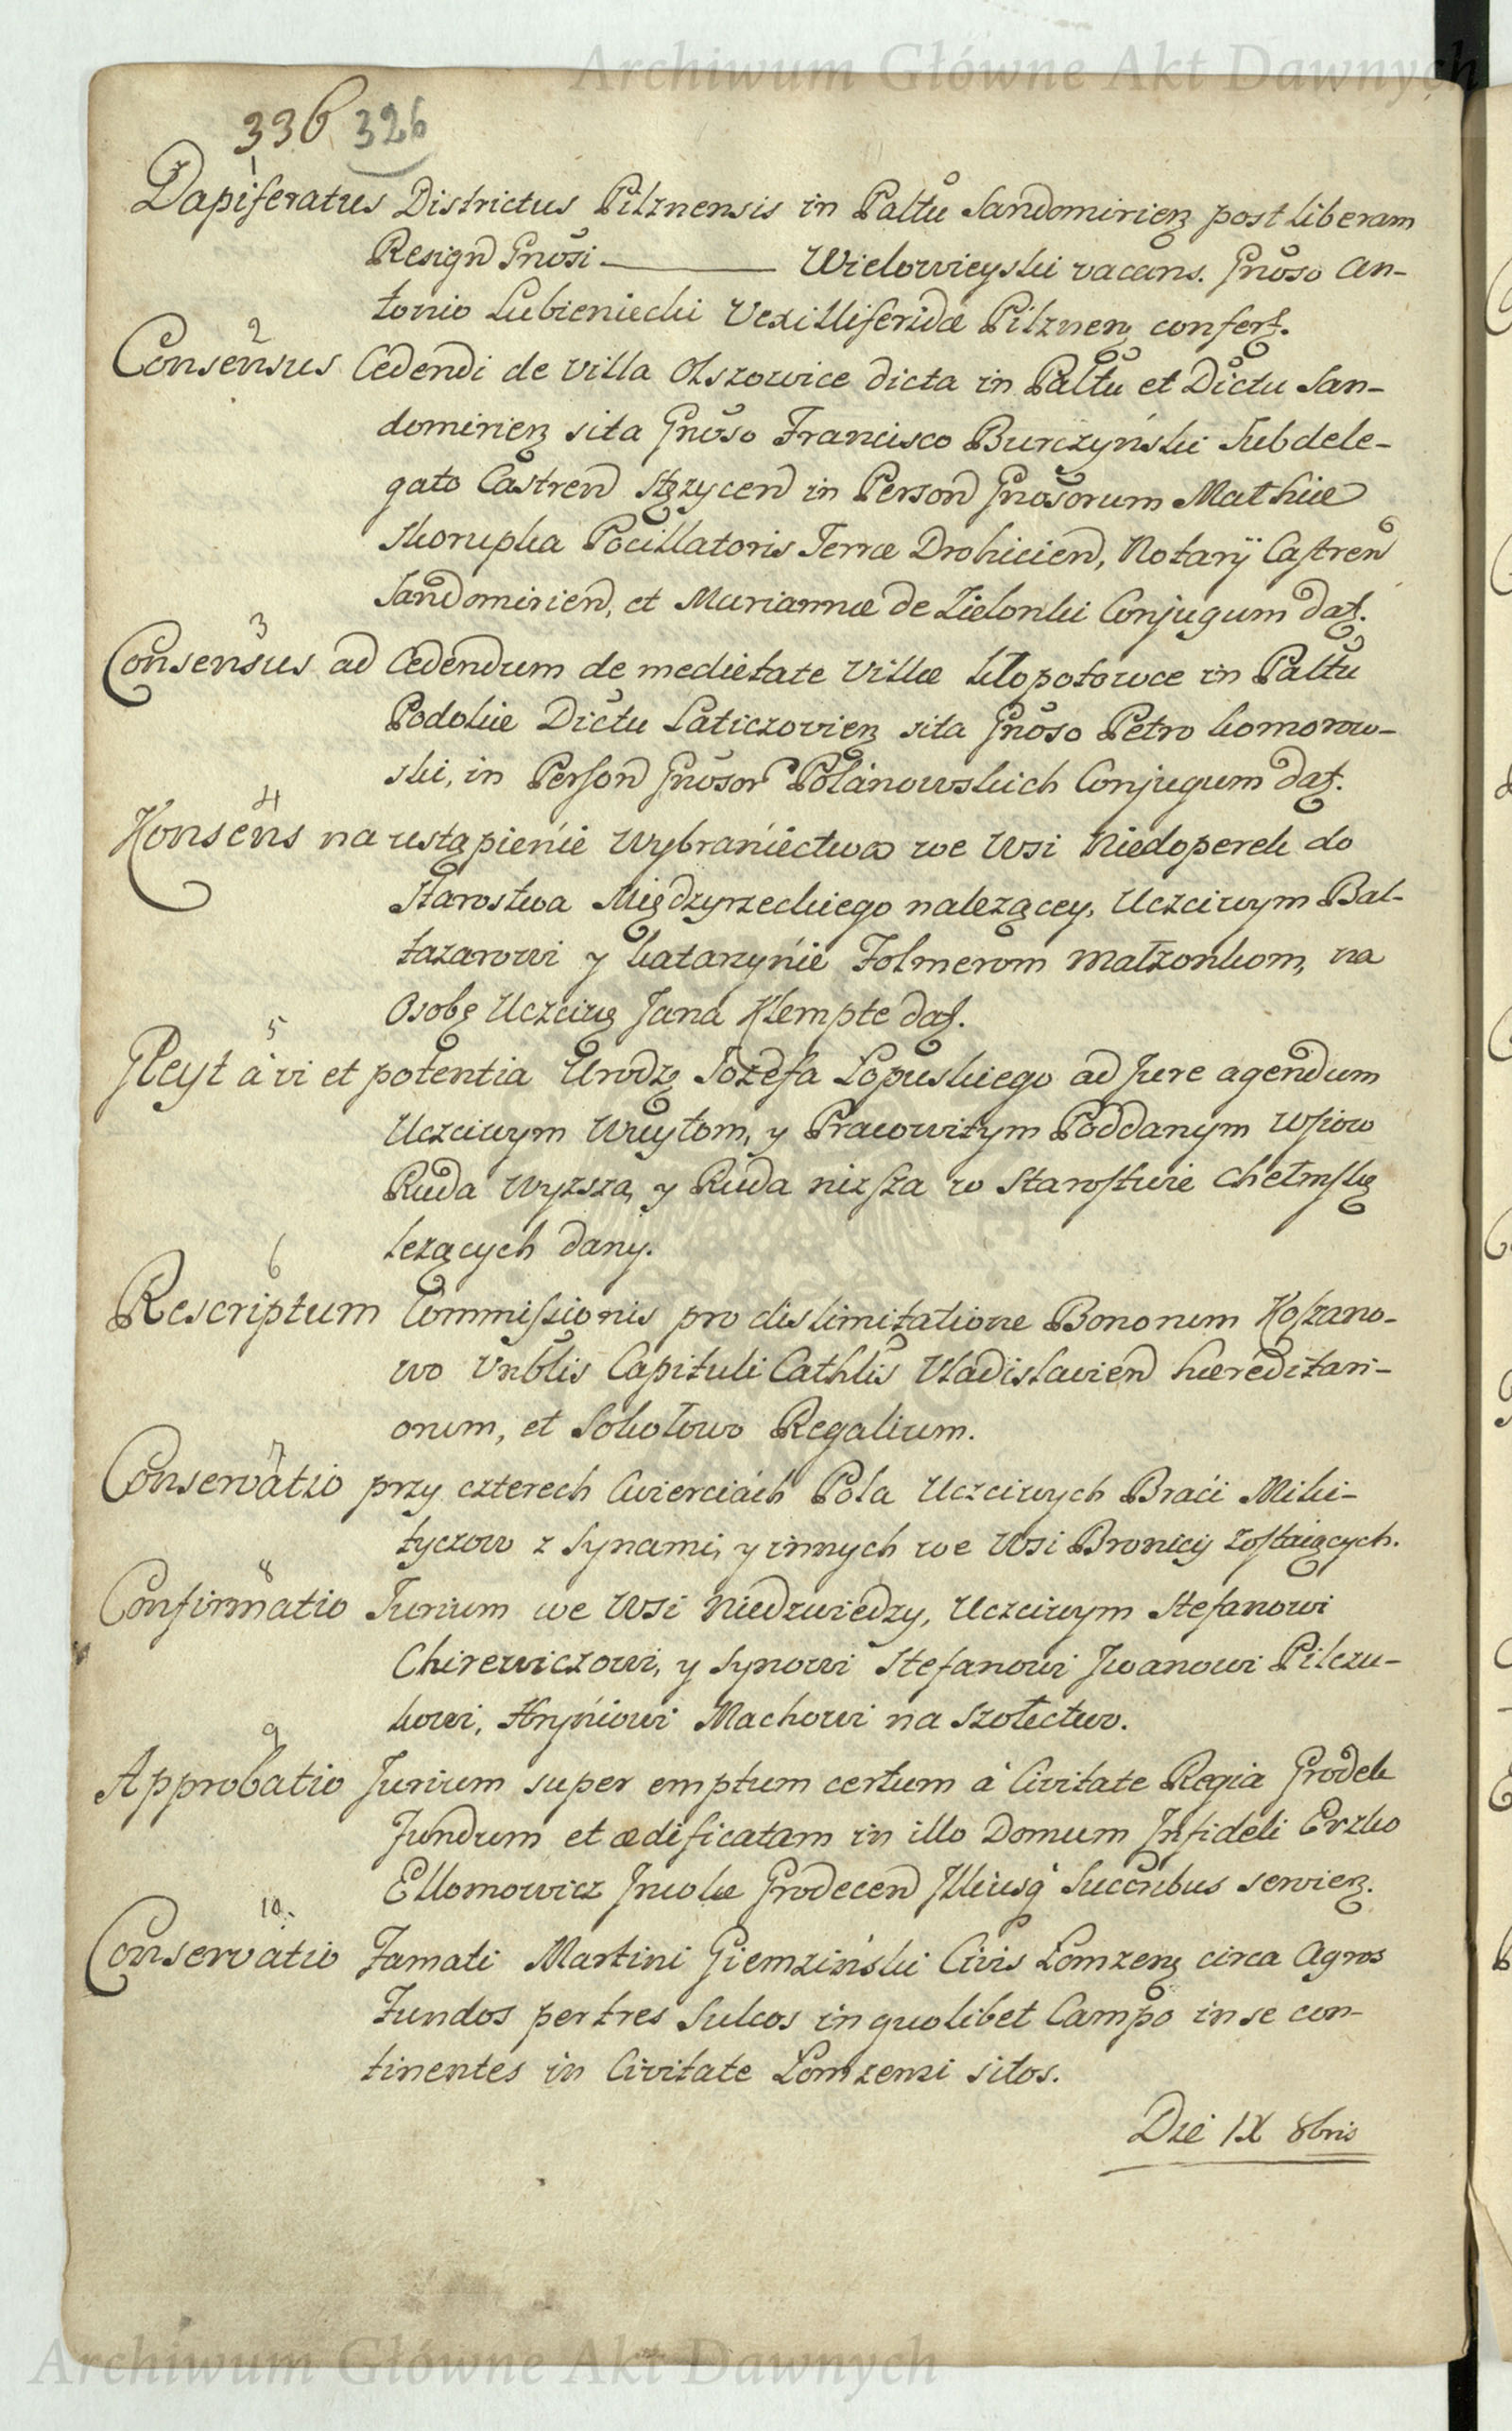 Archiwum Główne Akt Dawnych
336 326
1
Dapiferatus Districtus Pilznensis in Paltu Sandomirien post liberam
Resign Gnosi ——— Wielowieyski vacans. Gnoso An-
tonio Lubieniecki Vexilliferidæ Pilznen confert.
2
Consensus Cedendi de Villa Olszowice dicta in Paltu et Dictu San-
domirien sita Gnoso Francisco Burczyński Subdele-
gato Castren Stężycen in Person Gnosorum Mathiæ
Skorupka Pocillatoris Terræ Drohicien, Notarij Castren
Sandomirien, et Mariannæ de Zielonki Conjugum dat.
3
Consensus ad Cedendum de medietate Villæ Kłopotowce in Paltu
Podoliæ Dictu Laticzovien sita Gnoso Petro Komorow-
ski, in Person Gnosor Polanowskich Conjugum dat.
4
Konsens na ustąpienie Wybraniectwa we Wsi Niedoperek do
Starostwa Międzyrzeckiego nalezącey, Uczciwym Bal-
tazarowi y Katarzynie Folmerom małzonkom, na
Osobę Uczciwą Jana Klempte dat.
5
Gleyt à vi et potentia Urodz Jozefa Łopuskiego ad Jure agendum
Uczciwym Wuytom, y Pracowitym Poddanym Wsiow
Ruda Wyzsza, y Ruda nizsza w Starostwie Chełmskę
lezących dany.
6
Rescriptum Commissionis pro dislimitatione Bonorum Koszano-
wo Vnblis Capituli Cathlis Vladislavien hæreditari-
orum, et Sokołowo Regalium.
7
Conservatio przy czterech Cwierciach Pola Uczciwych Braci Miki-
tyczow z Synami, y innych we Wsi Bronicy zostaiących.
8
Confirmatio Jurium we Wsi Niedzwiedzy, Uczciwym Stefanowi
Chirewiczowi, y Synowi Stefanowi Jwanowi Pilczu-
kowi, Hryniowi Machowi na Szołectwo.
9
Approbatio Jurium super emptum certum à Civitate Regia Grodek
Fundum et ædificatam in illo Domum Infideli Erzko
Ellomowicz Incolæ Grodecen Illiusq Succribus servien.
10.
Conservatio Famati Martini Giemziński Civis Łomzen circa Agros
Fundos per tres Sulcos in quolibet Campo in se con-
tinentes in Civitate Łomzensi sitos.
Die IX 8bris
Archiwum Główne Akt Dawnych